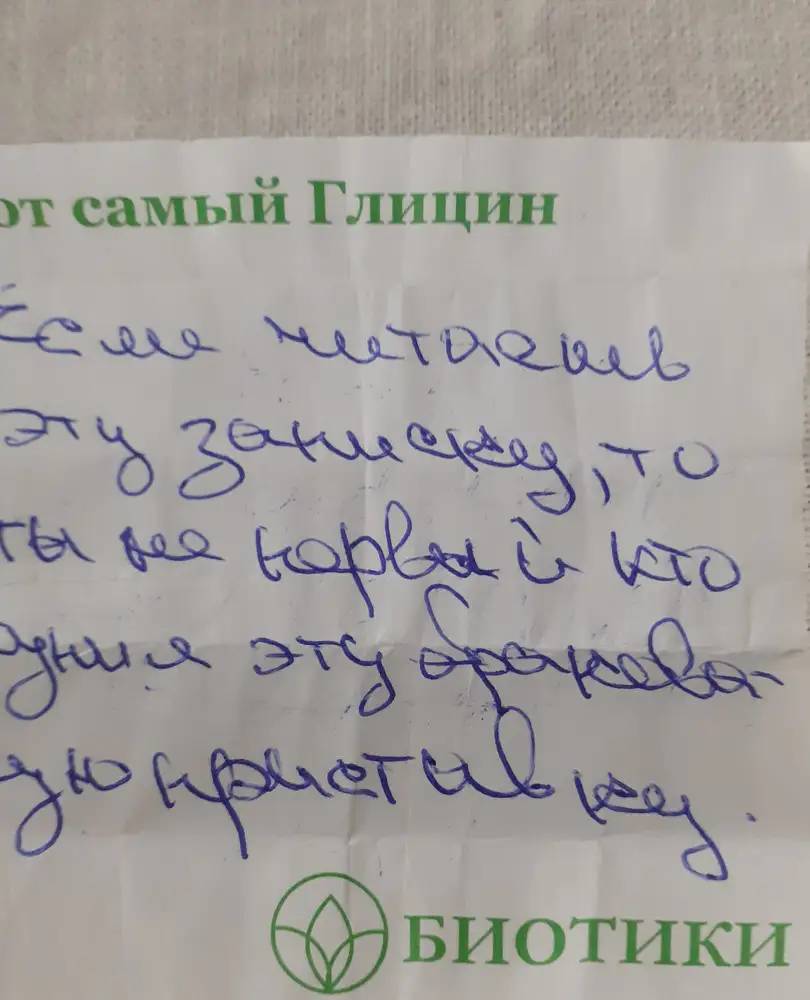 от самый Глицин
Если читаешь
эту записку, то
ты не первый кто
купил эту бракова-
ную приставку.
БИОТИКИ